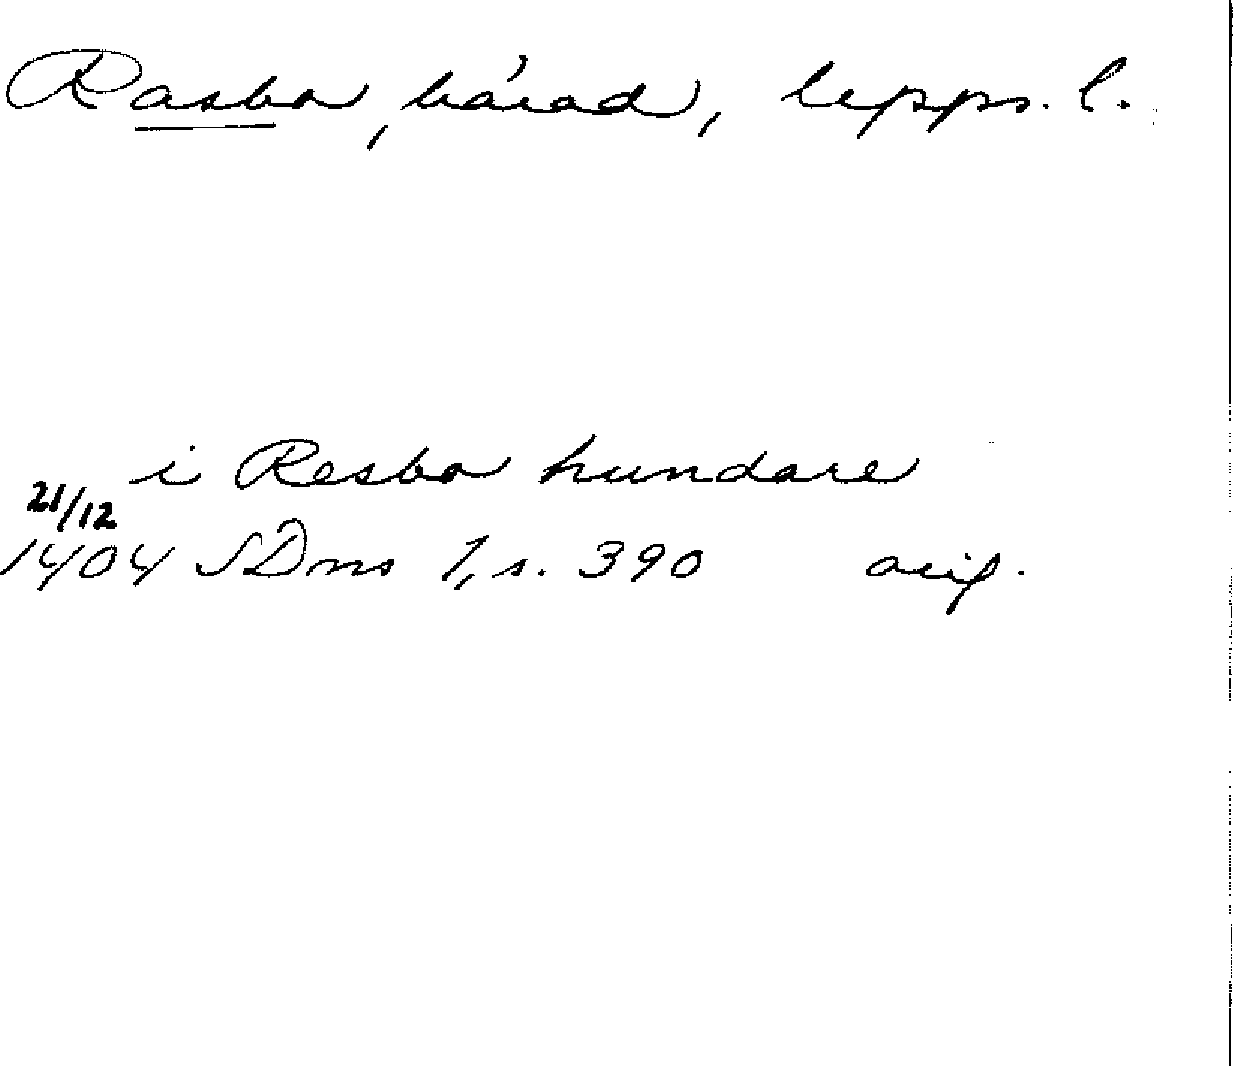 Rasbo, härad, Upps. l.
i Resbo hundare
21/12
1404 SDns 1, s. 390 orig.